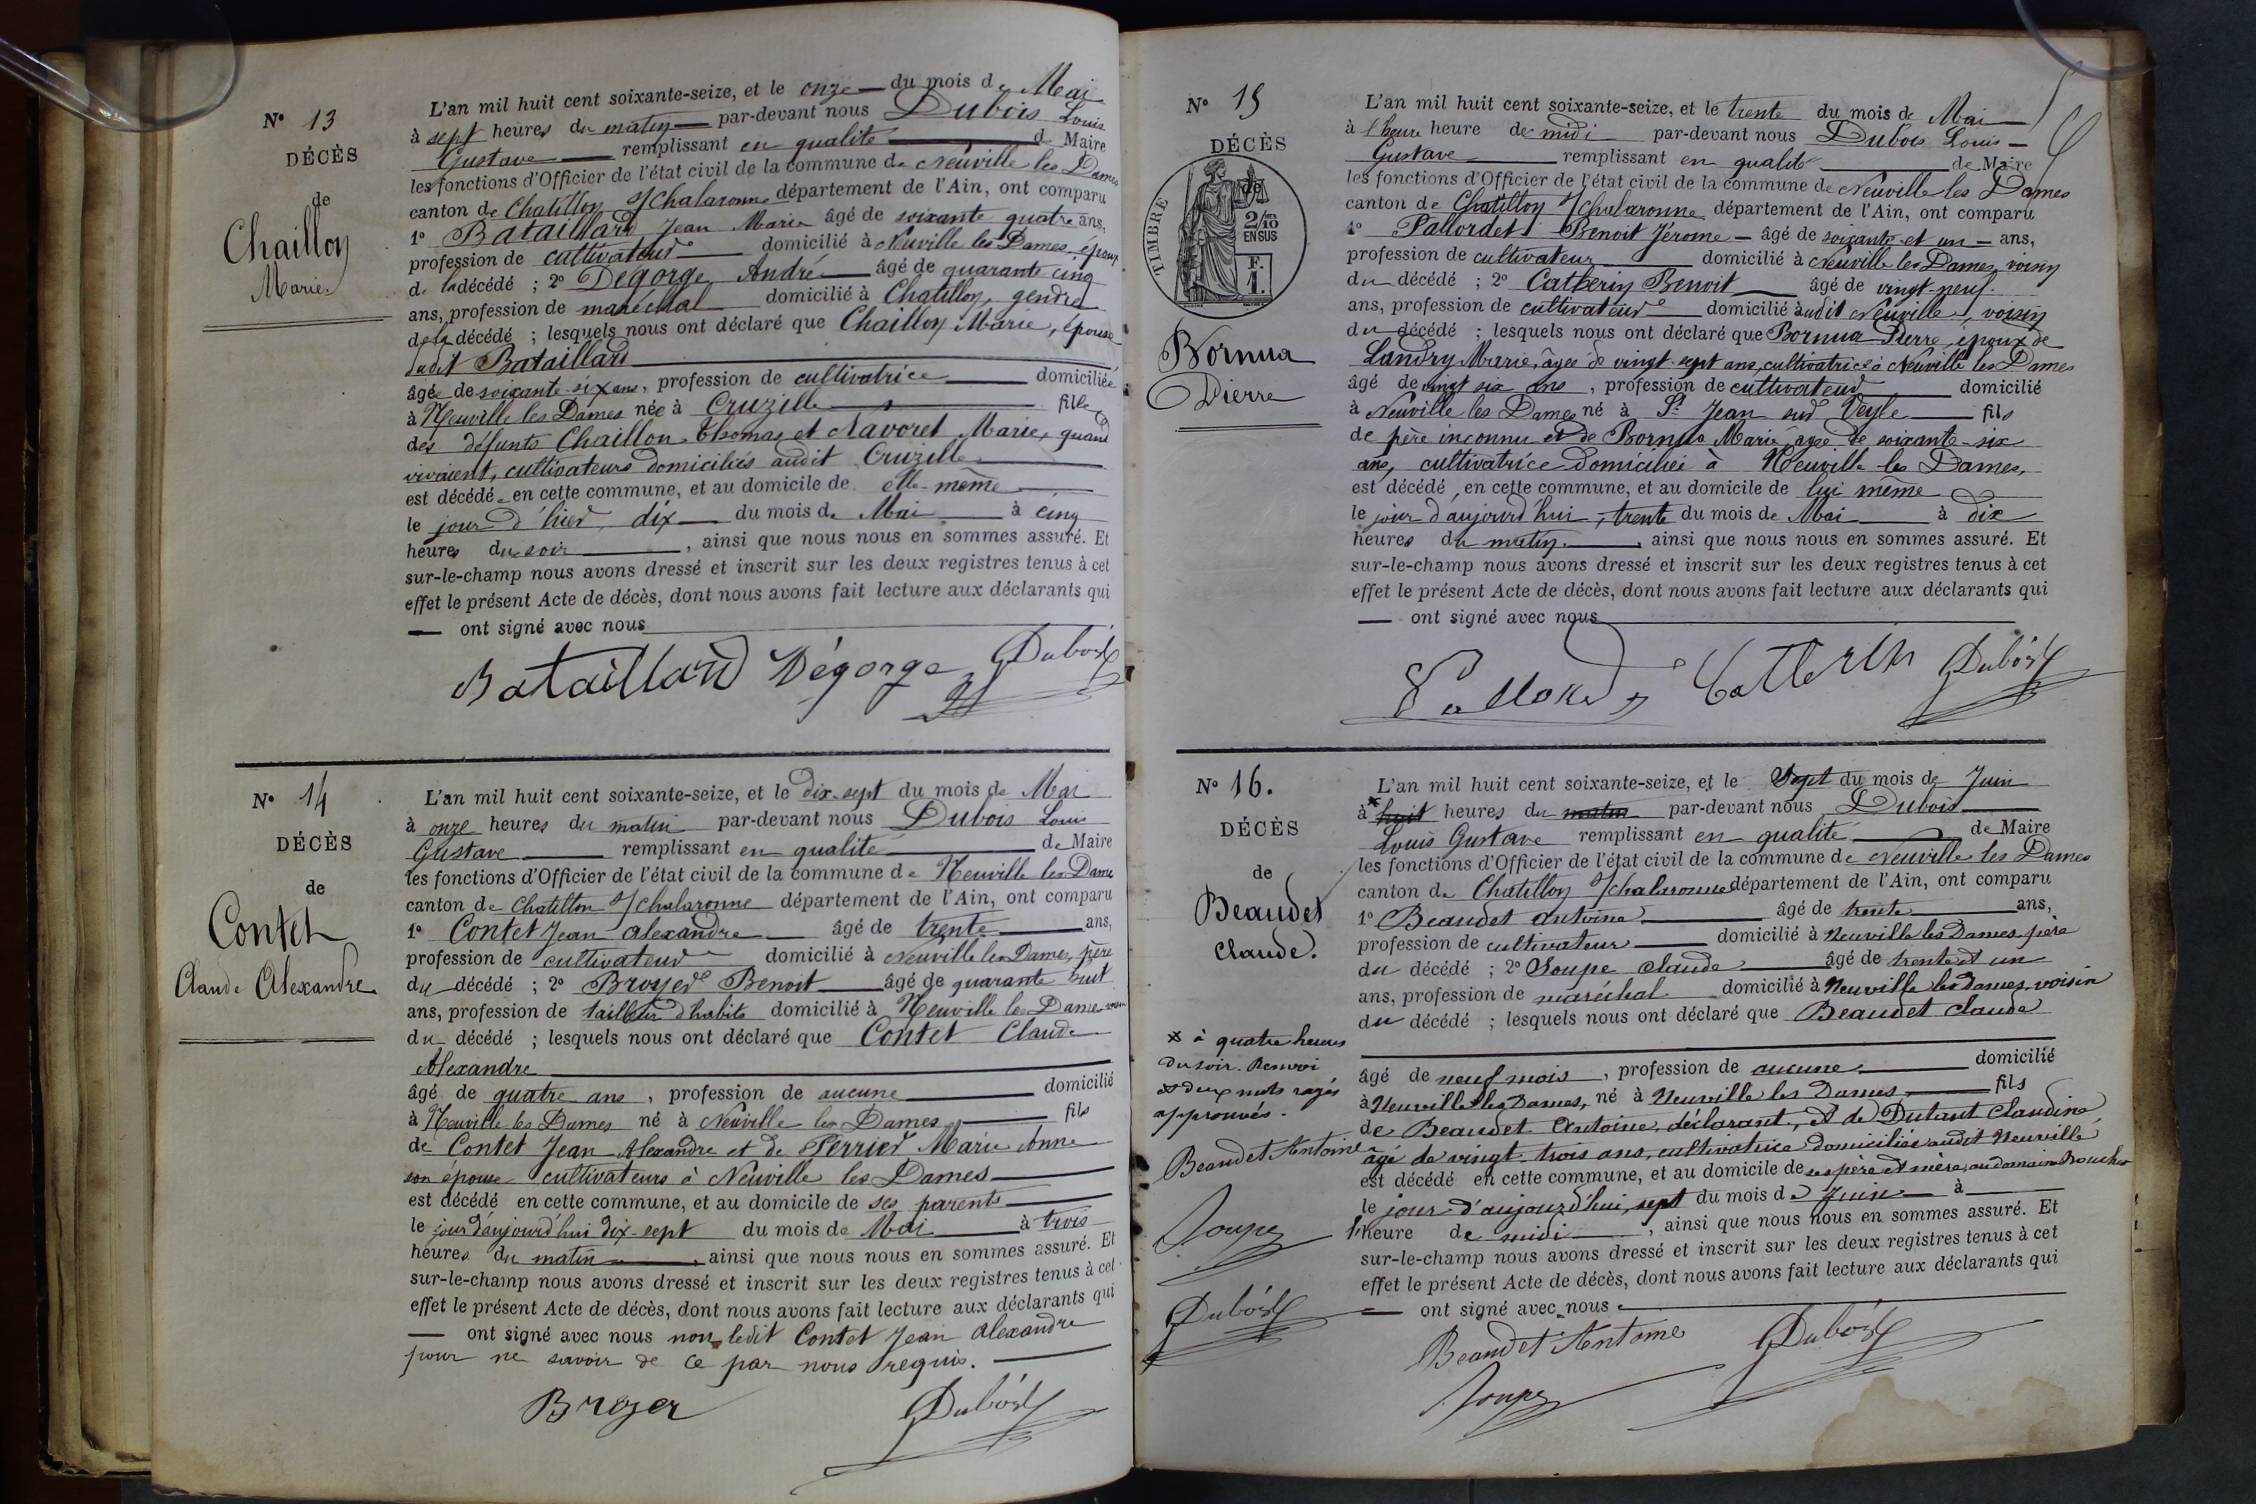 N° 13
DÉCÈS
de
Chaillon
Marie
L'an mil huit cent soixante-seize, et le onze du mois de Mai
à sept heures du matin par-devant nous Dubois Louis
Gustave remplissant en qualité de Maire
les fonctions d'Officier de l'état civil de la commune de Neuville les Dames
canton de Chatillon s/Chalaronne département de l'Ain, ont comparu
1° Bataillard Jean Marie âgé de soixante quatre ans,
profession de cultivateur domicilié à Neuville les Dames, époux
de la décédé ; 2° Dégorge André âgé de quarante cinq
ans, profession de maréchal domicilié à Chatillon, gendre
de la décédé ; lesquels nous ont déclaré que Chaillon Marie, épouse
dudit Bataillard
âgée de soixante-six ans, profession de cultivatrice domiciliée
à Neuville les Dames née à Cruzille fille
des défunts Chaillon Thomas et Navoret Marie, quand
vivaient, cultivateurs domiciliés audit Cruzille
est décédé en cette commune, et au domicile de elle-même
le jour d'hier, dix du mois de Mai à cinq
heures du soir, ainsi que nous nous en sommes assuré. Et
sur-le-champ nous avons dressé et inscrit sur les deux registres tenus à cet
effet le présent Acte de décès, dont nous avons fait lecture aux déclarants qui
— ont signé avec nous
Bataillard Dégorge Dubois
N° 14
DÉCÈS
de
Contet
Claude Alexandre
L'an mil huit cent soixante-seize, et le dix-sept du mois de Mai
à onze heures du matin par-devant nous Dubois Louis
Gustave remplissant en qualité de Maire
les fonctions d'Officier de l'état civil de la commune de Neuville les Dames
canton de Chatillon s/Chalaronne département de l'Ain, ont comparu
1° Contet Jean Alexandre âgé de trente ans,
profession de cultivateur domicilié à Neuville les Dames, père
du décédé ; 2° Broyer Benoit âgé de quarante huit
ans, profession de tailleur d'habits domicilié à Neuville les Dames voisin
du décédé ; lesquels nous ont déclaré que Contet Claude
Alexandre
âgé de quatre ans, profession de aucune domicilié
à Neuville les Dames né à Neuville les Dames fils
de Contet Jean Alexandre et de Perrier Marie Anne
son épouse cultivateurs à Neuville les Dames
est décédé en cette commune, et au domicile de ses parents
le jour d'aujourd'hui dix-sept du mois de Mai à trois
heures du matin, ainsi que nous nous en sommes assuré. Et
sur-le-champ nous avons dressé et inscrit sur les deux registres tenus à cet
effet le présent Acte de décès, dont nous avons fait lecture aux déclarants qui
— ont signé avec nous non ledit Contet Jean Alexandre
pour ne savoir de ce par nous requis.
Broyer Dubois
N° 15
DÉCÈS
de
TIMBRE
2/10 EN SUS
F. 1.
Bornua
Pierre
L'an mil huit cent soixante-seize, et le trente du mois de Mai
à 1 heure heure de midi par-devant nous Dubois Louis
Gustave remplissant en qualité de Maire
les fonctions d'Officier de l'état civil de la commune de Neuville les Dames
canton de Chatillon s/Chalaronne département de l'Ain, ont comparu
1° Pallordet Benoit Jérome âgé de soixante et un ans,
profession de cultivateur domicilié à Neuville les Dames, voisin
du décédé ; 2° Catherin Benoit âgé de vingt-neuf
ans, profession de cultivateur domicilié audit Neuville, voisin
du décédé ; lesquels nous ont déclaré que Bornua Pierre, époux de
Landry Marie, âgée de vingt-sept ans, cultivatrice à Neuville les Dames
âgé de vingt six ans, profession de cultivateur domicilié
à Neuville les Dames né à St Jean sur Veyle fils
de père inconnu et de Bornua Marie, âgée de soixante-six
ans, cultivatrice domiciliée à Neuville les Dames,
est décédé en cette commune, et au domicile de lui même
le jour d'aujourd'hui, trente du mois de Mai à dix
heures du matin, ainsi que nous nous en sommes assuré. Et
sur-le-champ nous avons dressé et inscrit sur les deux registres tenus à cet
effet le présent Acte de décès, dont nous avons fait lecture aux déclarants qui
— ont signé avec nous
Catterin Dubois
N° 16.
DÉCÈS
de
Beaudet
Claude.
x à quatre heures
du soir. Renvoi
et deux mots rayés
approuvés.
Beaudet Antoine
Soupe
Dubois
L'an mil huit cent soixante-seize, et le Sept du mois de Juin
à x huit heures du matin par-devant nous Dubois
Louis Gustave remplissant en qualité de Maire
les fonctions d'Officier de l'état civil de la commune de Neuville les Dames
canton de Chatillon s/Chalaronne département de l'Ain, ont comparu
1° Beaudet Antoine âgé de trente ans,
profession de cultivateur domicilié à Neuville les Dames, père
du décédé ; 2° Soupe Claude âgé de trente et un
ans, profession de maréchal domicilié à Neuville les Dames, voisin
du décédé ; lesquels nous ont déclaré que Beaudet Claude
âgé de neuf mois, profession de aucune domicilié
à Neuville les Dames, né à Neuville les Dames fils
de Beaudet Antoine, déclarant, et de Dutant Claudine
âgé de vingt-trois ans, cultivatrice domiciliée audit Neuville
est décédé en cette commune, et au domicile de ses père et mère, au domaine
le jour d'aujourd'hui, sept du mois de Juin à
1 heure de midi, ainsi que nous nous en sommes assuré. Et
sur-le-champ nous avons dressé et inscrit sur les deux registres tenus à cet
effet le présent Acte de décès, dont nous avons fait lecture aux déclarants qui
— ont signé avec nous
Beaudet Antoine Dubois
Soupe